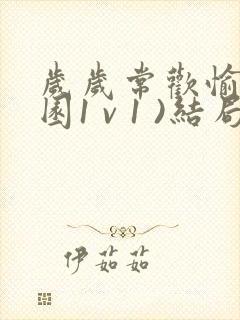 歲歲常歡愉
園1v1)結局
伊茹茹